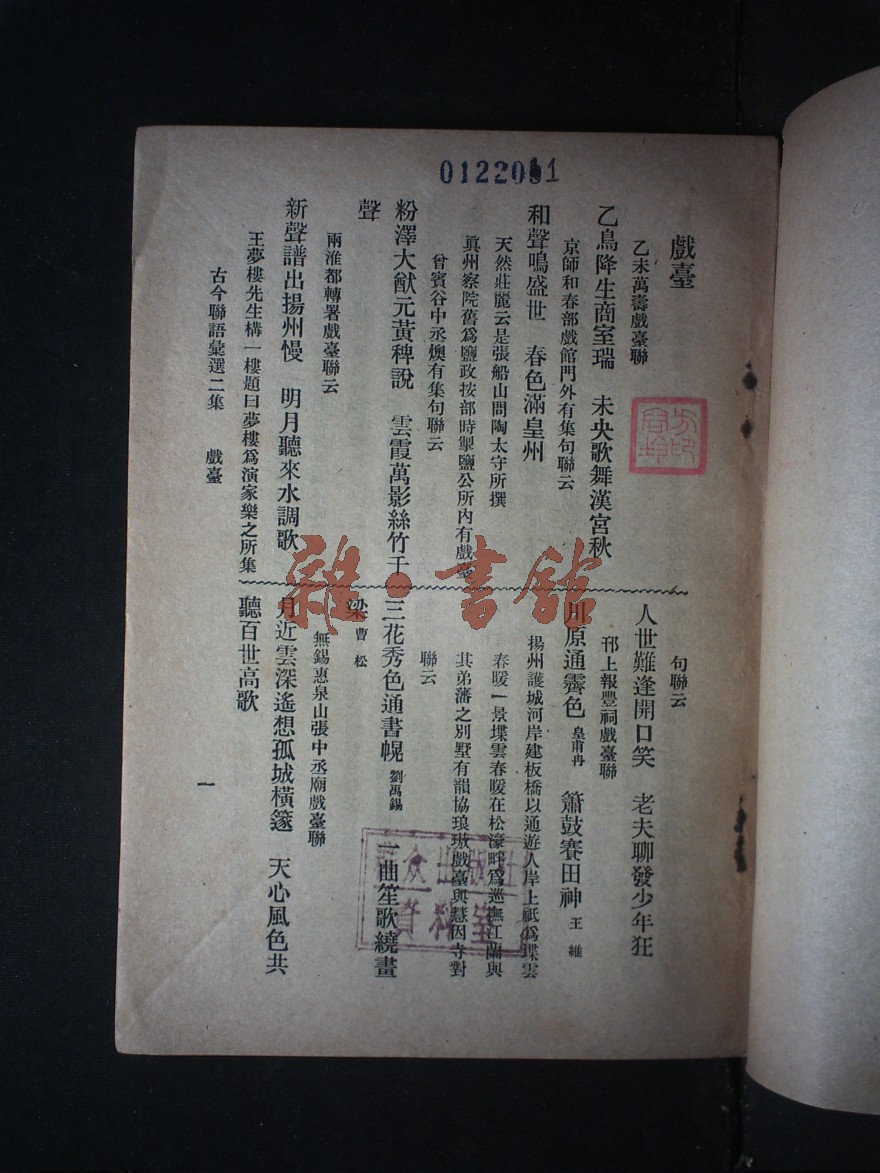 0122011
戲臺
乙未萬壽戲臺聯
乙鳥降生商室瑞　未央歌舞漢宮秋
京師和春部戲館門外有集句聯云
和聲鳴盛世　春色滿皇州
天然莊麗云是張船山問陶太守所撰
眞州察院舊爲鹽政按部時掣鹽公所內有戲臺
曾賓谷中丞燠有集句聯云
粉澤大猷元黃稗說　雲霞萬影絲竹千
聲
兩淮都轉署戲臺聯云
新聲譜出揚州慢　明月聽來水調歌
王夢樓先生構一樓題曰夢樓爲演家樂之所集
古今聯語彙選二集　戲臺
句聯云
人世難逢開口笑　老夫聊發少年狂
邗上報豐祠戲臺聯
川原通霽色 皇甫冉　簫鼓賽田神 王維
揚州護城河岸建板橋以通遊人岸上祇爲堞雲
春暖一景堞雲春暖在松濠畔爲巡撫江蘭與
其弟藩之別墅有韻協琅璈戲臺與慧因寺對
聯云
三花秀色通書幌 劉禹錫　一曲笙歌繞畫
梁 曹松
無錫惠泉山張中丞廟戲臺聯
月近雲深遙想孤城橫篴　天心風色共
聽百世高歌
一
雜·書館
衆出版社
資料室